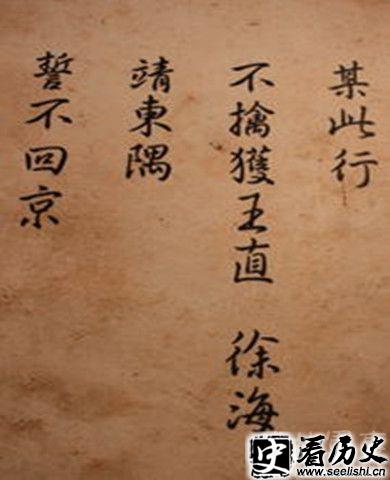 某此行
不擒獲王直 徐海
靖東隅
誓不回京
史 看历史
www.seelishi.cn